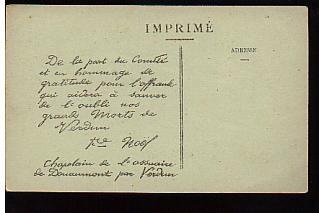 IMPRIMÉ
ADRESSE
De la part du Comité
et en hommage de
gratitude pour l'offrande
qui aidera à sauver
de l'oubli nos
grands Morts de
Verdun
Noël
Chapelain de l'ossuaire
de Douaumont par Verdun